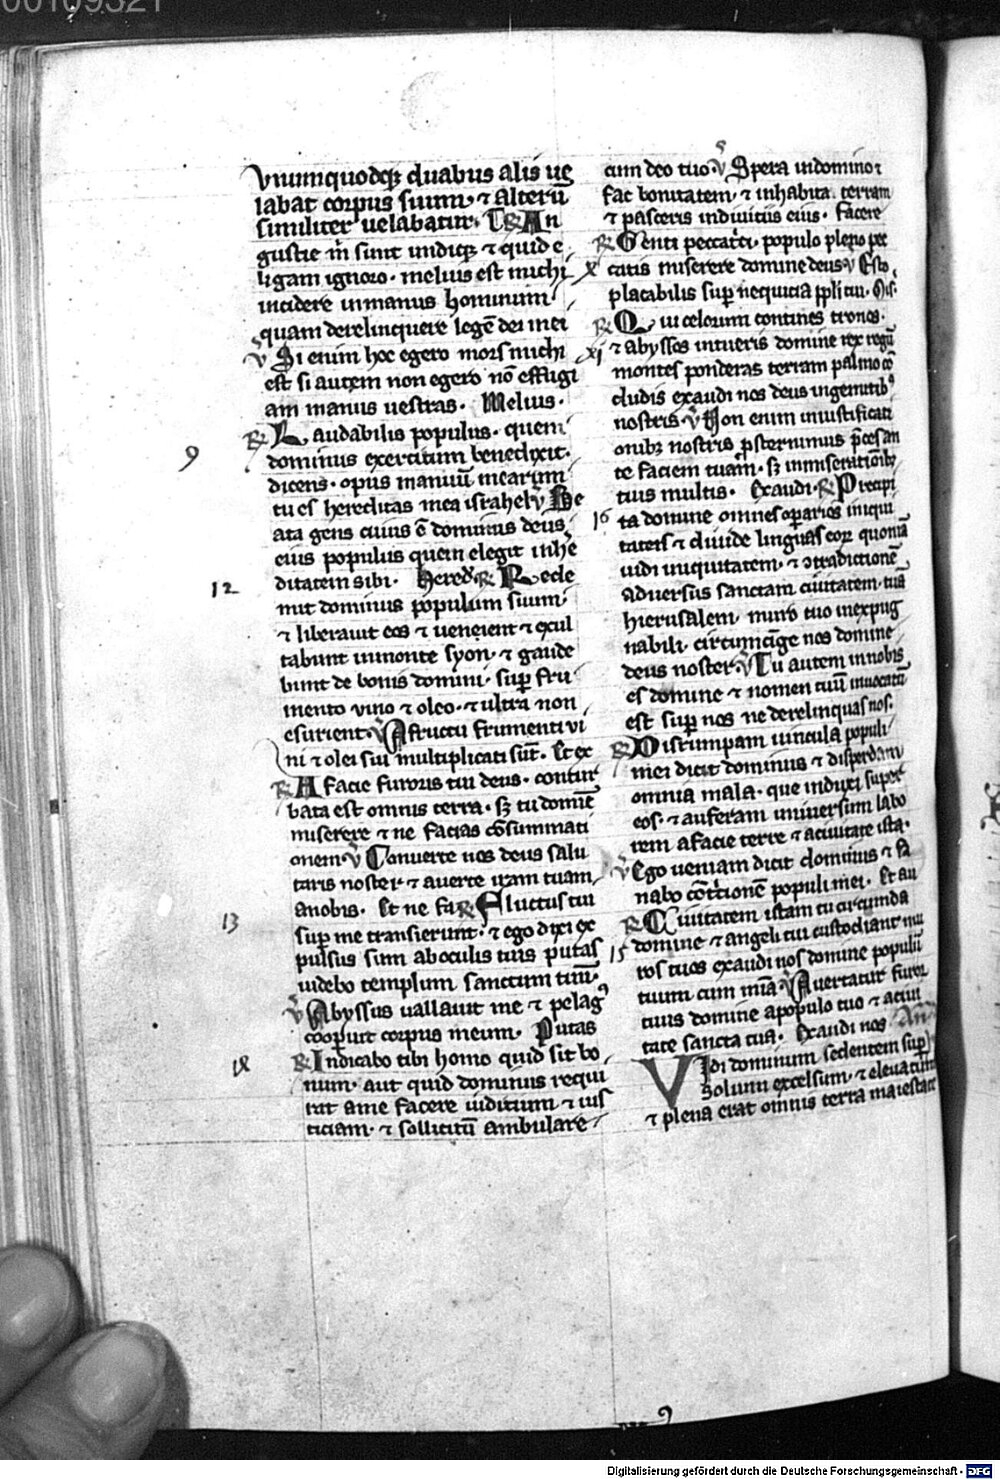 00109321
vnumquodqꝫ duabus alis ue
labat corpus suum ⁊ alterū
similiter uelabatur. ℟ An
gustie m̄ sunt undiqꝫ ⁊ quid e
ligam ignoro. melius est michi
incidere in manus hominum
quam derelinquere legē dei mei
℣ Si enim hoc egero mors michi
est si autem non egero nō effugi
am manus uestras. Melius.
℟ Laudabilis populus. quem
9
dominus exercituum benedixit.
dicens. opus manuū mearum
tu es hereditas mea israhel ℣ Be
ata gens cuius ē dominus deus
eius populus quem elegit in hē
ditatem sibi. Hered. ℟ Rede
12
mit dominus populum suum
⁊ liberauit eos ⁊ uenient ⁊ exul
tabunt in monte syon. ⁊ gaude
bunt de bonis domini. sup̄ fru
mento vino ⁊ oleo. ⁊ ultra non
esurient ℣ A fructu frumenti vi
ni ⁊ olei sui multiplicati sūt. Et ex
℟ A facie furoris tui deus. contur
bata est omnis terra. sꝫ tu domīe
miserere ⁊ ne facias cōsummati
onem ℣ Conuerte nos deus salu
taris noster ⁊ auerte iram tuam
a nobis. Et ne fa ℟ Fluctus tui
13
sup̄ me transierunt. ⁊ ego dixi ex
pulsus sum ab oculis tuis putas
uidebo templum sanctum tuū.
℣ Abyssus uallauit me ⁊ pelagꝰ
cooꝑuit corpus meum. Putas
℟ Indicabo tibi homo quid sit bo
num. aut quid dominus requi
rat a me facere iudicium ⁊ ius
ticiam. ⁊ sollicitū ambulare
cum deo tuo. ℣ Spera in domino ⁊
fac bonitatem. ⁊ inhabita terram
⁊ pasceris in diuitiis eius. Facere
℟ Genti peccat͛ci. populo pleno pec
x
catis miserere domine deus ℣ Esto
placabilis sup̄ nequicia ꝓpli tui. Mis.
℟ Qui celorum contines tronos.
xi
⁊ abyssos intueris domine rex regū
montes ponderas terram palmo cō
cludis exaudi nos deus in gemitibꝰ
nostris. ℣ Non enim in iustificati
onibꝫ nostris ꝓsternimus p̄ces an
te faciem tuam. sꝫ in miserationibꝫ
tuis multis. Exaudi. ℟ Precipi
16
ta domine omnes oꝑarios iniqui
tatis ⁊ diuide linguas eoꝝ quoniā
uidi iniquitatem. ⁊ ꝯtradictionē
aduersus sanctam ciuitatem tuā
hierusalem. muro tuo inexpug
nabili. circumcinge nos domine
deus noster. ℣ Tu autem in nobis
es domine ⁊ nomen tuū inuocatū
est sup̄ nos ne derelinquas nos.
℟ Disrumpam uincula populi
mei dicit dominus ⁊ disperdam
omnia mala. que induxi super
eos. ⁊ auferam uniuersum labo
rem a facie terre ⁊ a ciuitate ista.
℣ Ego ueniam dicit dominus ⁊ sa
nabo cōt͛cionē populi mei. Et au
℟ Ciuitatem istam tu circumda
15
domine ⁊ angeli tui custodiant mu
ros tuos exaudi nos domine populū
tuum cum mīa ℣ Auertatur furor
tuus domine a populo tuo ⁊ a ciui
tate sancta tua. Exaudi nos Añ
VIdi dominum sedentem sup̄
solium excelsum. ⁊ eleuatum
⁊ plena erat omnis terra maiestate
Digitalisierung gefördert durch die Deutsche Forschungsgemeinschaft - DFG